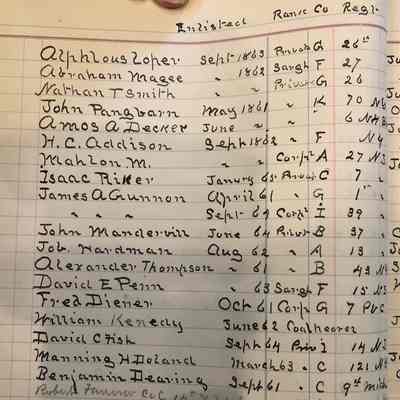 Enlisted Rank Co Regt.
Alphlous Loper Sept 1863 Privat G 26th
Abraham Magee " 1862 Sargh F 27
Nathan T Smith " " Privat G 26
John Pangbarn May 1861 " K 70 N.Y
Amos A Decker June " " 6 N.Y.
H.C. Addison Sept 1862 " F N.Y
Mahlon M. " " Corpl A 27 N.J
Isaac Riker January 65 Privat C 7 "
James A Gunnon April 61 " G 1st "
" " " Sept 64 Corpl I 39 "
John Mandervill June 64 Privat B 37 "
Job. Hardman Aug 62 " A 13 "
Alexander Thompson " 61 " B 43 N.Y
David E Penn " 63 Sargh F 15 N.J
Fred Diener Oct 61 Corp G 7 PVC
William Kenedy June 62 Coalheaver
David C Fish Sept 64 Priv I 14 N.J
Manning H Doland March 63 " C 121 N.Y
Benjamin Dearing Sept 61 " C 9th Mich
Robert Co C